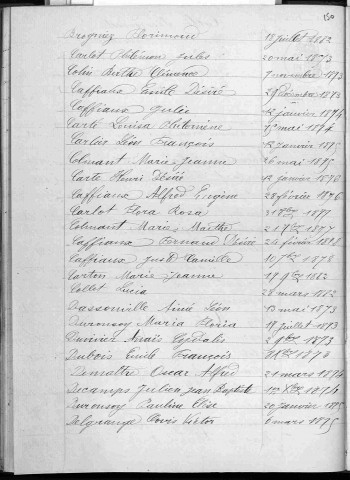 150
Brogniez Florimond 18 juillet 1882
Carlot Philémon Jules 20 mai 1873
Colin Berthe Clémence 7 novembre 1873
Caffiaux Emile Désiré 29 Décembre 1873
Coffiaux Julie 12 janvier 1874
Carte Louisa Antonine 15 mai 1874
Carlier Léon François 12 janvier 1875
Colmant Marie Jeanne 26 mai 1875
Carte Henri Désiré 12 janvier 1876
Caffiaux Alfred Eugène 28 février 1876
Carlot Flora Rosa 31 1877
Colmant Marie Marthe 21 9bre 1877
Caffiaux Fernand Désiré 24 février 1878
Caffiaux Camille 10 7bre 1878
Carton Marie Jeanne 19 9bre 1882
Collet Lucia 28 mars 1882
Dassonville Aimé Léon 13 mai 1873
Duronsoy Maria Floria 19 juillet 1873
Anaïs 2 9bre 1873
Dubois Emile François 1873
Dematte Oscar Alfred 21 mars 1874
Decamps Julien Jean Baptiste 1er Xbre 1874
Duronsoy Pauline Elise 20 janvier 1875
Delgrange Clovis Victor 6 mars 1875